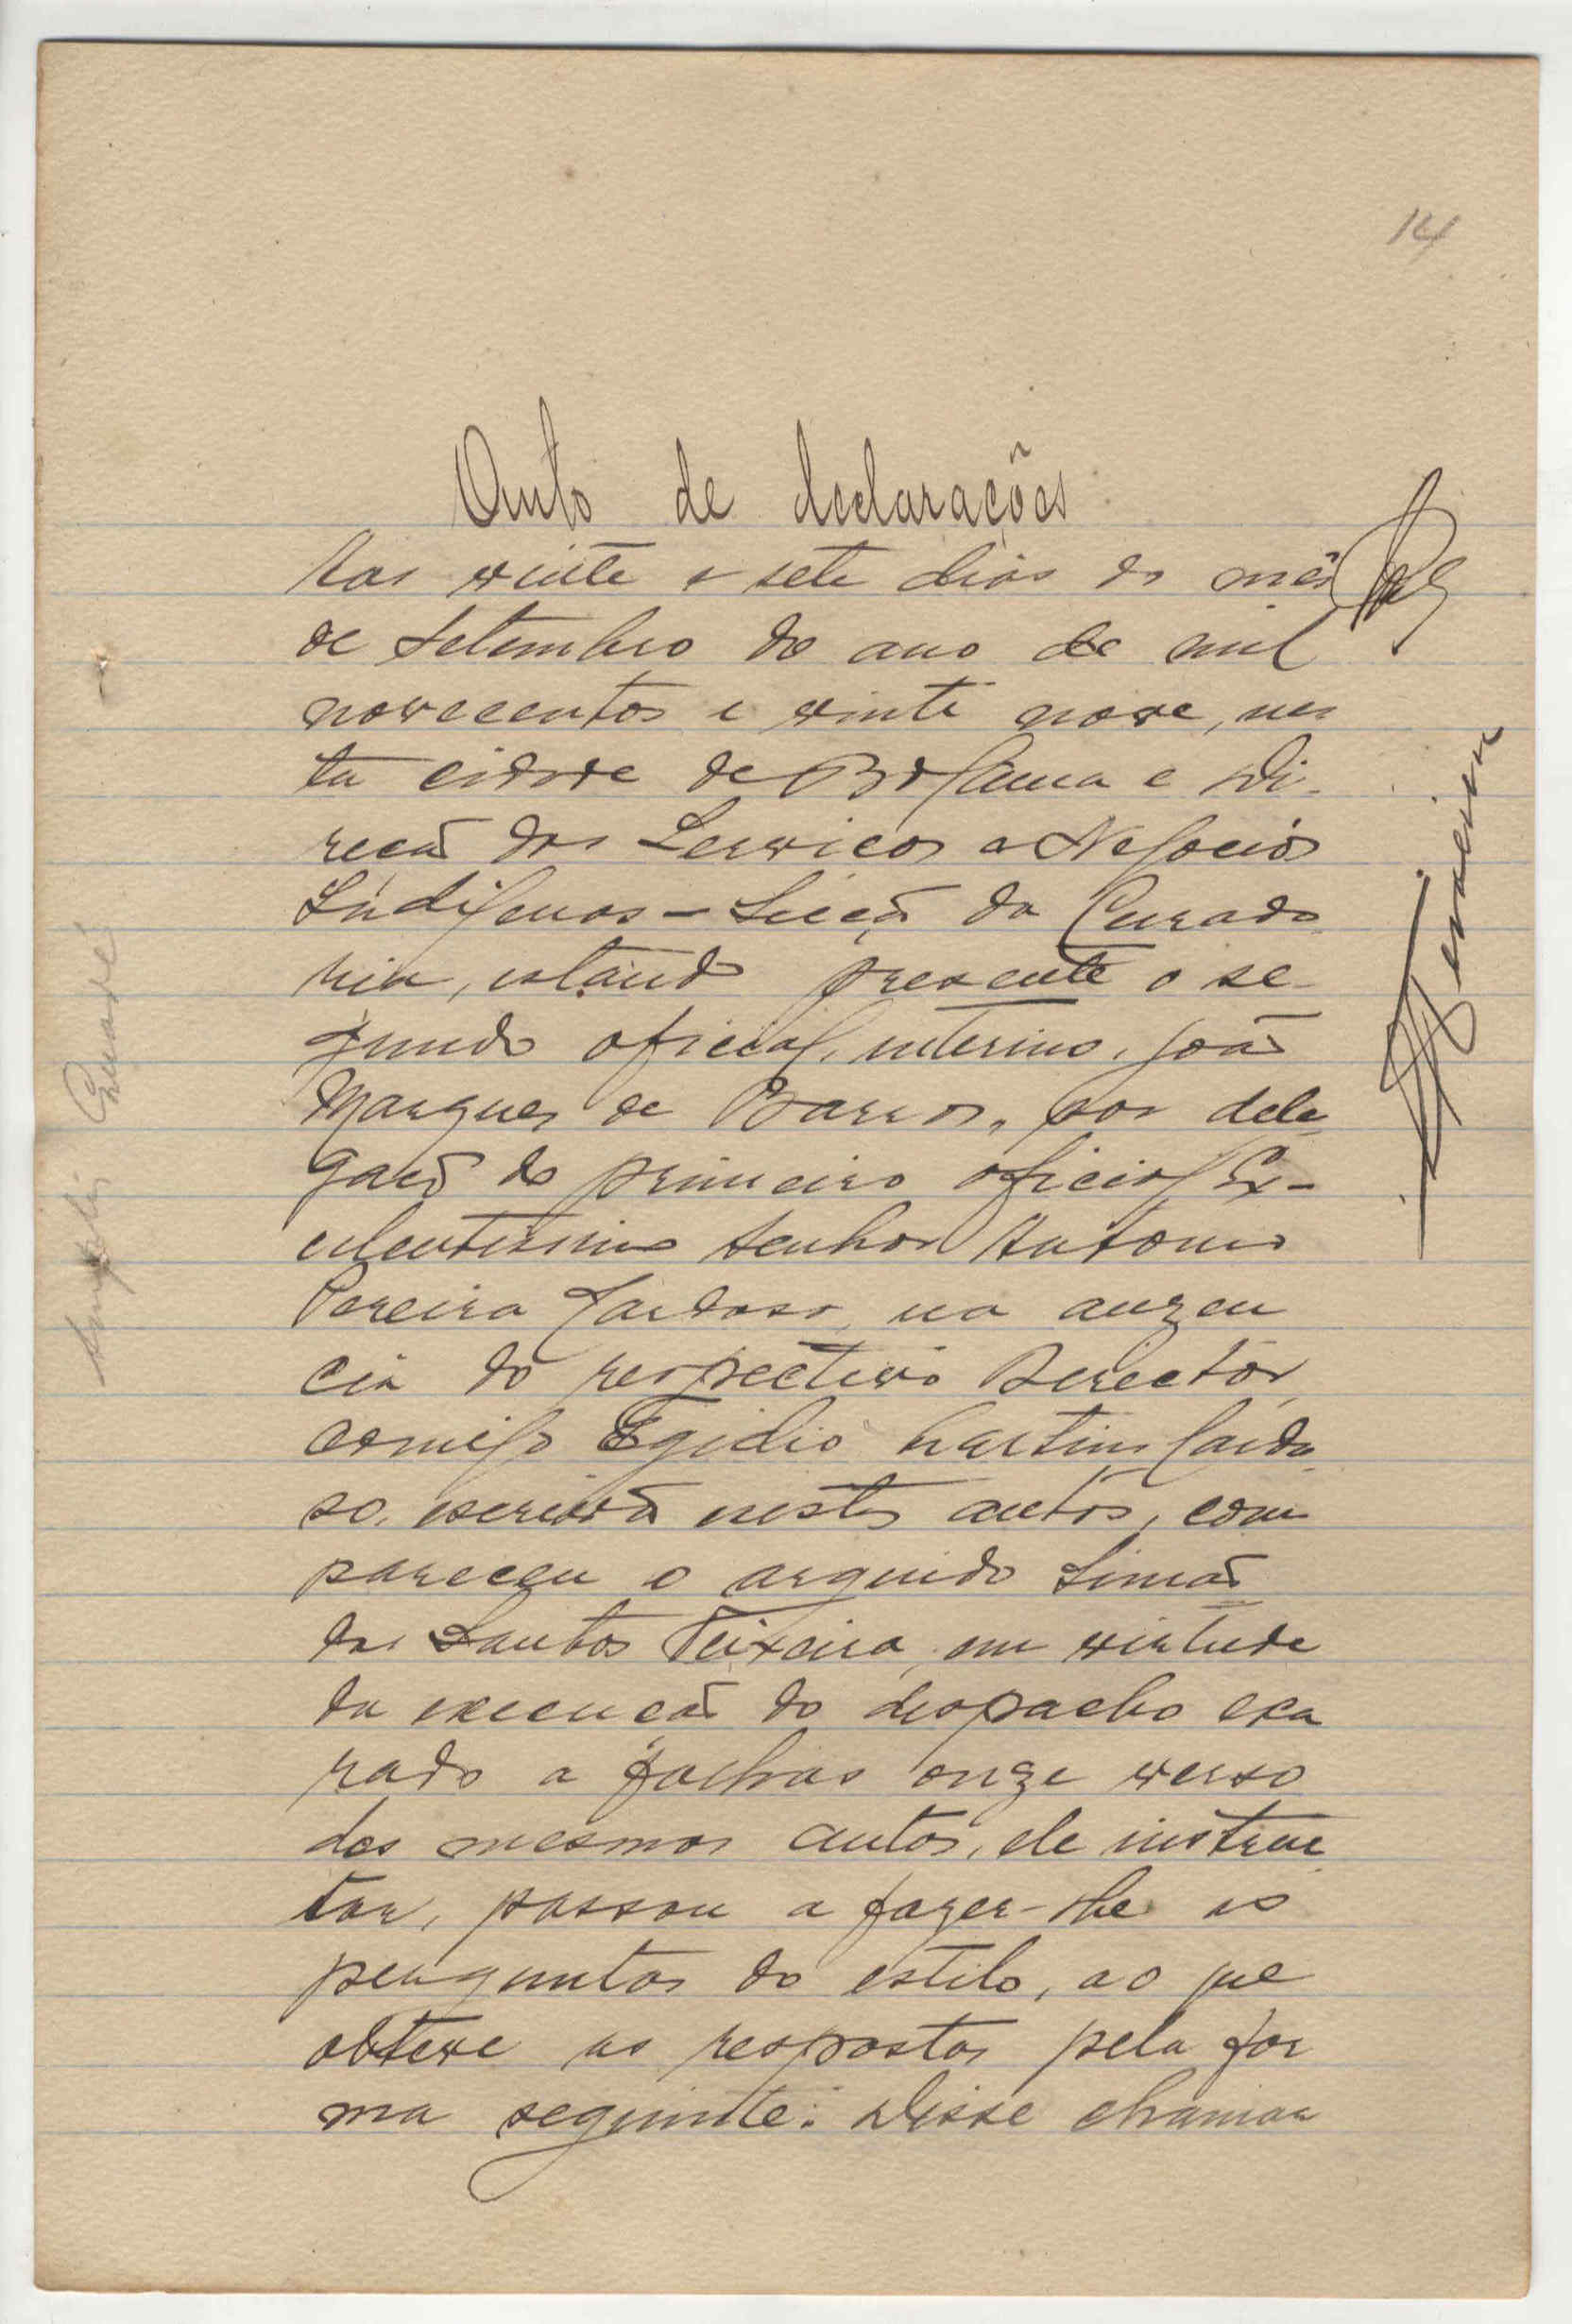 14
Auto de declarações
Aos vinte e sete dias do mês
de Setembro do ano de mil
novecentos e vinte nove, nes
ta cidade de Bolama e Di-
recção dos Serviços e Negocios
Indigenas - Secção da Curado
ria, estando presente o se-
gundo oficial, interino, João
Marques de Barros, por dele
gação do primeiro oficial Ex-
celentissimo Senhor Antonio
Pereira Cardoso, na auzen
cia do respectivo Director,
comigo Egidio Martins Cardo
so, escrivão nestes autos, com
pareceu o arguido Simão
dos Santos Teixeira, em virtude
da execução do despacho exa
rado a folhas onze verso
dos mesmos autos, ele instru
tor, passou a fazer-lhe as
perguntas do estilo, ao que
obteve as respostas pela for
ma seguinte: Disse chamar